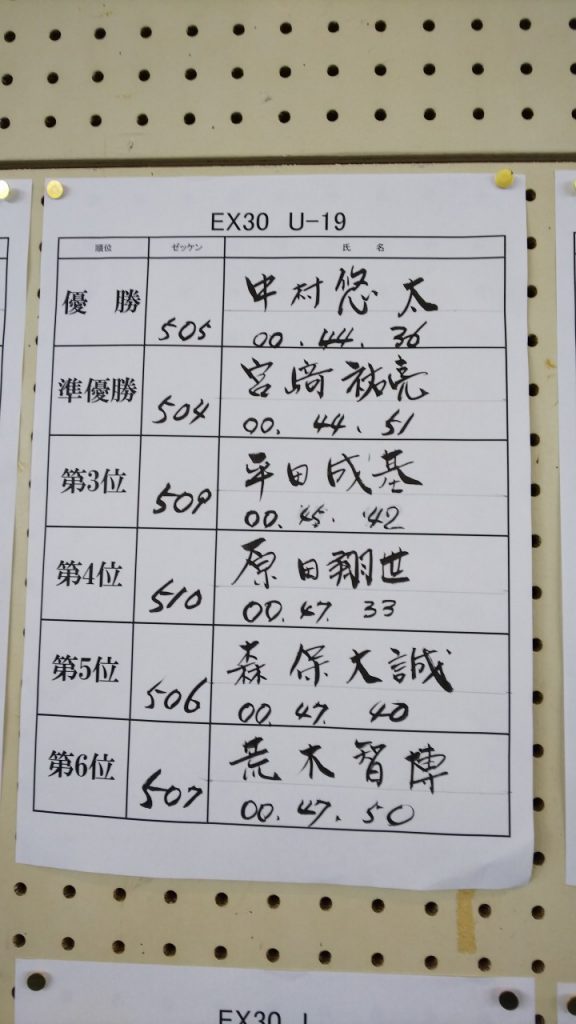 EX30 U-19
順位 ゼッケン 氏 名
優 勝 505 中村悠太
00.44.36
準優勝 504 宮﨑祐亮
00.44.51
第3位 509 平田成基
00.45.42
第4位 510 原田翔世
00.47.33
第5位 506 森保大誠
00.47.40
第6位 507 荒木智博
00.47.50